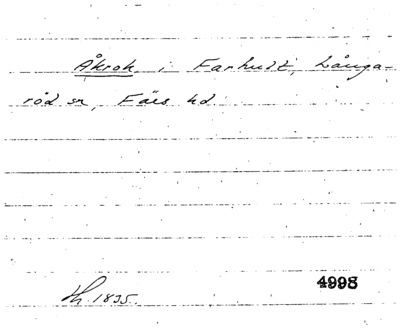 Åkrok i Farhult, Långa-
röd sn, Färs hd
Th. 1835.
4998